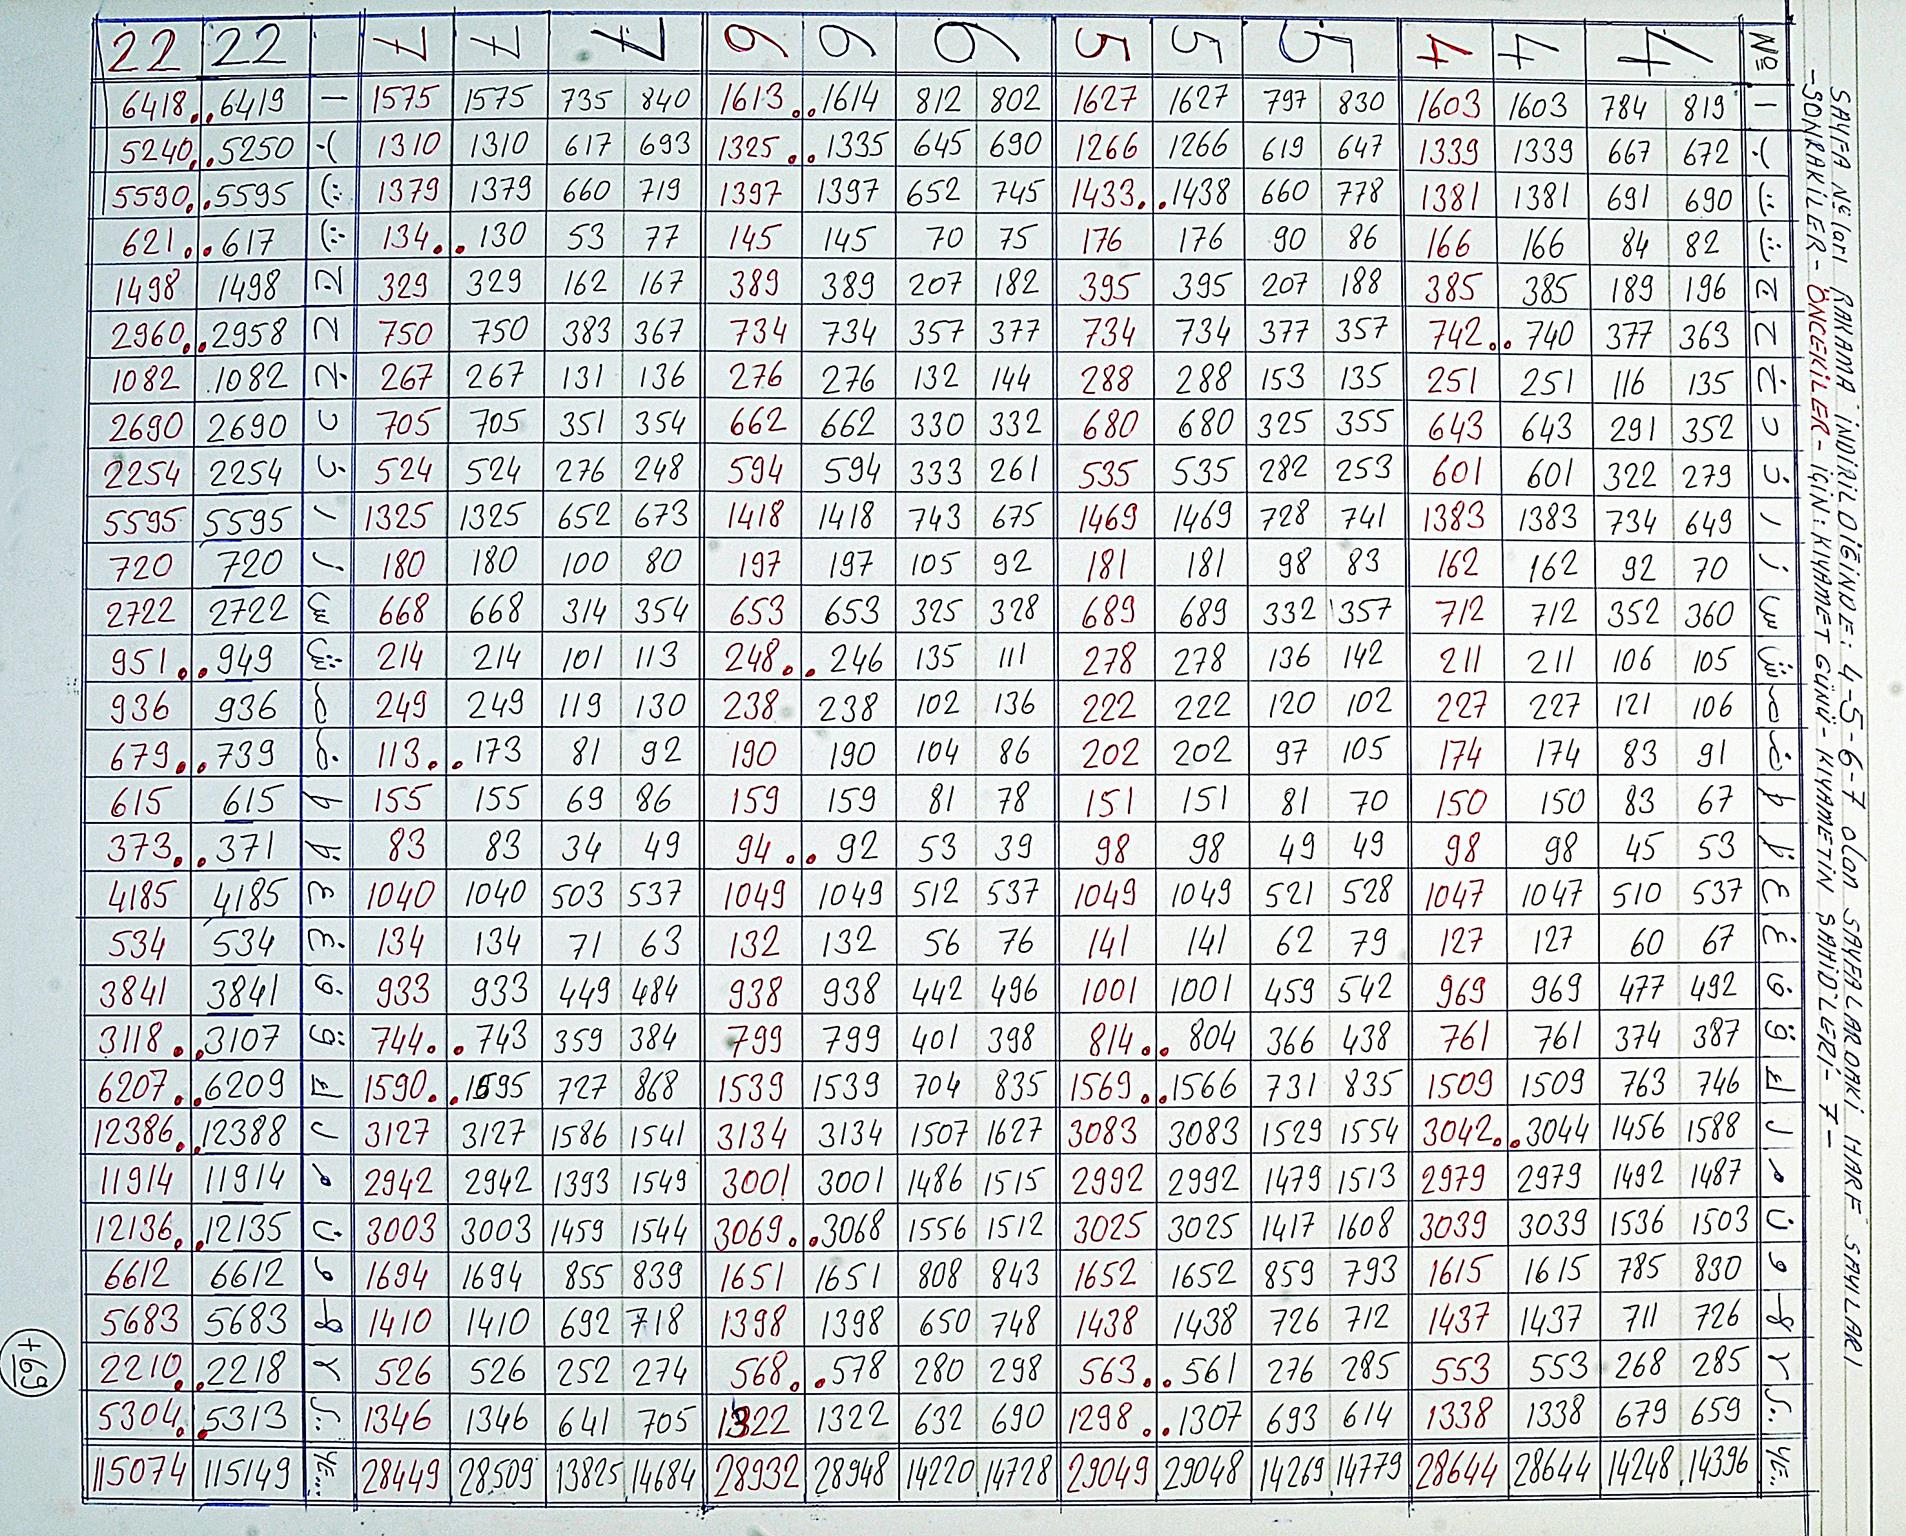 SAYFA Nºları RAKAMA İNDİRİLDİĞİNDE: 4-5-6-7 olan SAYFALARDAKİ HARF SAYILARI
-SONRAKİLER- ÖNCEKİLER- İÇİN: KIYAMET GÜNÜ- KIYAMETİN ŞAHİDLERİ- 7-
22 22 7 7 7 6 6 6 5 5 5 4 4 4 Nº
6418..6419 ا 1575 1575 735 840 1613..1614 812 802 1627 1627 797 830 1603 1603 784 819 ا
5240..5250 ب 1310 1310 617 693 1325..1335 645 690 1266 1266 619 647 1339 1339 667 672 ب
5590..5595 ت 1379 1379 660 719 1397 1397 652 745 1433..1438 660 778 1381 1381 691 690 ت
621..617 ث 134..130 53 77 145 145 70 75 176 176 90 86 166 166 84 82 ث
1498 1498 ج 329 329 162 167 389 389 207 182 395 395 207 188 385 385 189 196 ج
2960..2958 ح 750 750 383 367 734 734 357 377 734 734 377 357 742..740 377 363 ح
1082 1082 خ 267 267 131 136 276 276 132 144 288 288 153 135 251 251 116 135 خ
2690 2690 د 705 705 351 354 662 662 330 332 680 680 325 355 643 643 291 352 د
2254 2254 ذ 524 524 276 248 594 594 333 261 535 535 282 253 601 601 322 279 ذ
5595 5595 ر 1325 1325 652 673 1418 1418 743 675 1469 1469 728 741 1383 1383 734 649 ر
720 720 ز 180 180 100 80 197 197 105 92 181 181 98 83 162 162 92 70 ز
2722 2722 س 668 668 314 354 653 653 325 328 689 689 332 357 712 712 352 360 س
951..949 ش 214 214 101 113 248..246 135 111 278 278 136 142 211 211 106 105 ش
936 936 ص 249 249 119 130 238 238 102 136 222 222 120 102 227 227 121 106 ص
679..739 ض 113..173 81 92 190 190 104 86 202 202 97 105 174 174 83 91 ض
615 615 ط 155 155 69 86 159 159 81 78 151 151 81 70 150 150 83 67 ط
373..371 ظ 83 83 34 49 94..92 53 39 98 98 49 49 98 98 45 53 ظ
4185 4185 ع 1040 1040 503 537 1049 1049 512 537 1049 1049 521 528 1047 1047 510 537 ع
534 534 غ 134 134 71 63 132 132 56 76 141 141 62 79 127 127 60 67 غ
3841 3841 ف 933 933 449 484 938 938 442 496 1001 1001 459 542 969 969 477 492 ف
3118..3107 ق 744..743 359 384 799 799 401 398 814..804 366 438 761 761 374 387 ق
6207..6209 ك 1590..1595 727 868 1539 1539 704 835 1569..1566 731 835 1509 1509 763 746 ك
12386..12388 ل 3127 3127 1586 1541 3134 3134 1507 1627 3083 3083 1529 1554 3042..3044 1456 1588 ل
11914 11914 م 2942 2942 1393 1549 3001 3001 1486 1515 2992 2992 1479 1513 2979 2979 1492 1487 م
12136..12135 ن 3003 3003 1459 1544 3069..3068 1556 1512 3025 3025 1417 1608 3039 3039 1536 1503 ن
6612 6612 و 1694 1694 855 839 1651 1651 808 843 1652 1652 859 793 1615 1615 785 830 و
5683 5683 ه 1410 1410 692 718 1398 1398 650 748 1438 1438 726 712 1437 1437 711 726 ه
2210..2218 لا 526 526 252 274 568..578 280 298 563..561 276 285 553 553 268 285 لا
5304..5313 ي 1346 1346 641 705 1322 1322 632 690 1298..1307 693 614 1338 1338 679 659 ي
115074 115149 YE... 28449 28509 13825 14684 28932 28948 14220 14728 29049 29048 14269 14779 28644 28644 14248 14396 YE..
+69